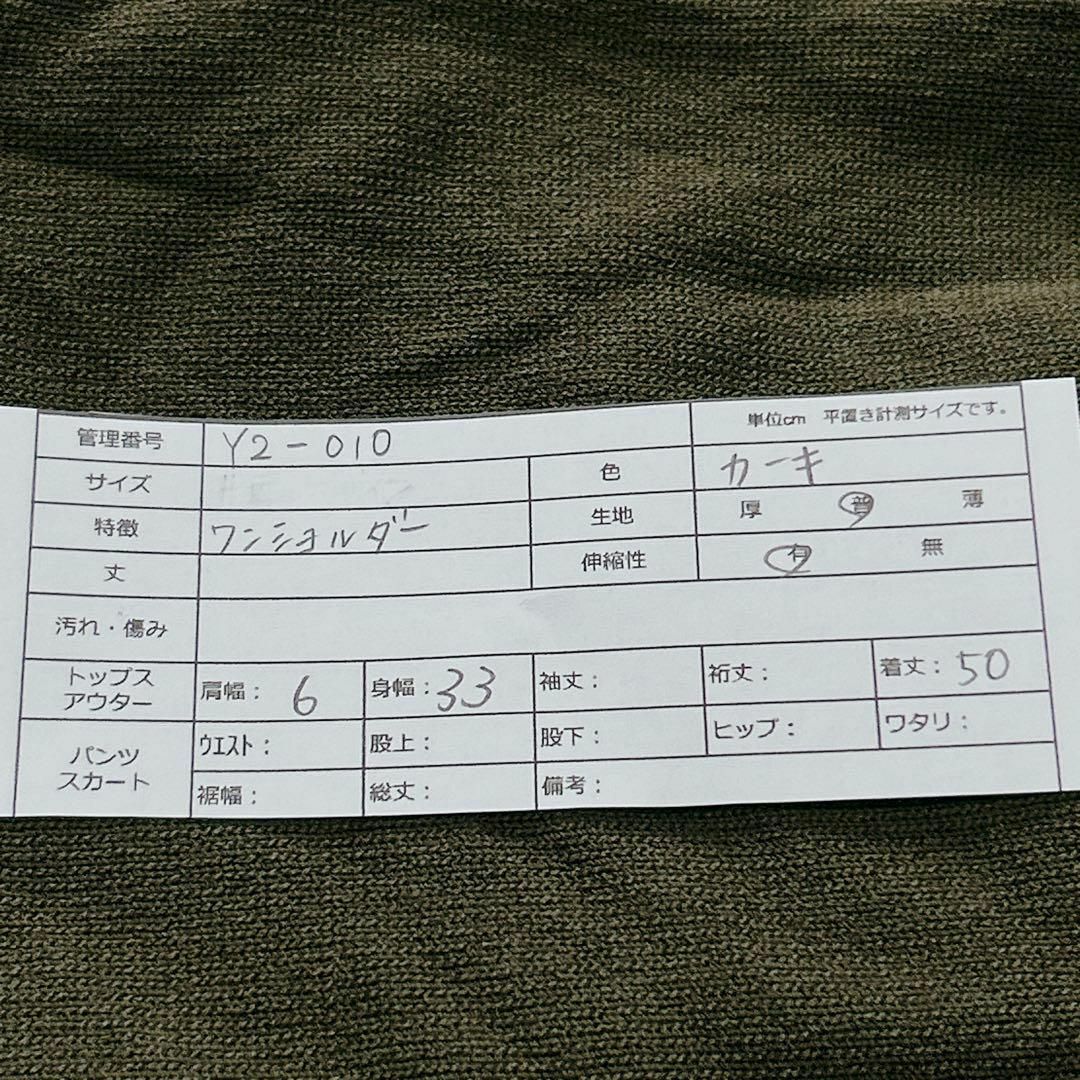 管理番号 Y2-010 単位cm 平置き計測サイズです。
サイズ 色 カーキ
特徴 ワンショルダー 生地 厚 普 薄
丈 伸縮性 有 無
汚れ・傷み
トップス アウター 肩幅: 6 身幅: 33 袖丈: 裄丈: 着丈: 50
パンツ スカート ウエスト: 股上: 股下: ヒップ: ワタリ:
裾幅: 総丈: 備考: